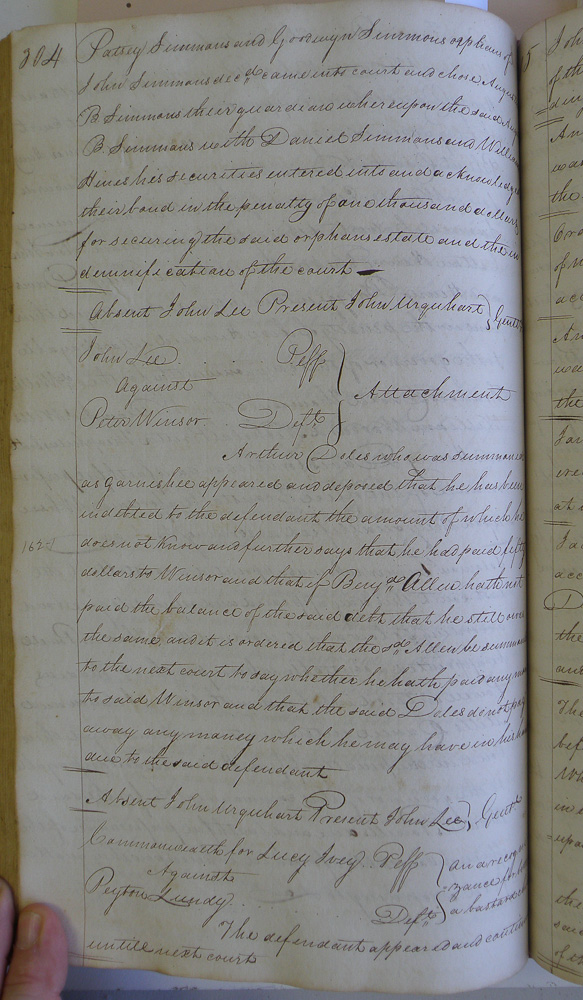 304
Patsey Simmons and Goodwyn Simmons orphans of
John Simmons decd came into court and chose
B Simmons their guardian whereupon the said
B Simmons with Daniel Simmons and William
Hines his securities entered into and acknowledged
their bond in the penalty of one thousand dollars
for securing the said orphans estate and the in
demnification of the court
Absent John Lee Present John Urquhart } Gentn
John Lee Peff
Against
Attachment
Peter Winsor Deft
Arthur Doles who was summoned
as garnishee appeared and deposed that he has been
indebted to the defendant the amount of which he
does not know and further says that he had paid fifty
dollars to Winsor and that if Benj Allen hath not
paid the balance of the said debt that he still owes
the same and it is ordered that the sd Allen be summoned
to the next court to say whether he hath paid any
to said Winsor and that the said Doles do not pay
away any money which he may have in his hands
due to the said defendant
Absent John Urquhart Present John Lee } Gentn
Commonwealth for Lucy Ivey Peff
on a recog
Against
zance for
Peyton Lundy Deft
a bastard
The defendant appeared and
untill next court